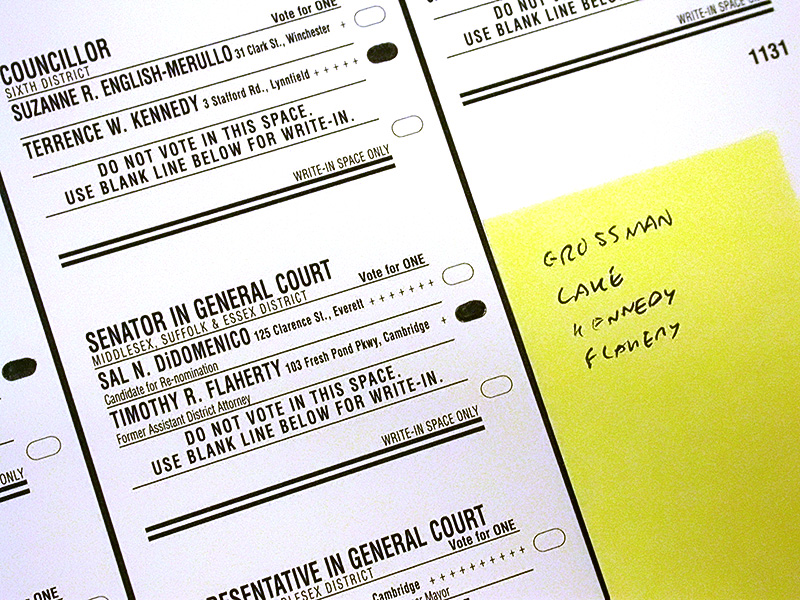 Vote for ONE
COUNCILLOR
SIXTH DISTRICT
SUZANNE R. ENGLISH-MERULLO 31 Clark St., Winchester +
TERRENCE W. KENNEDY 3 Stafford Rd., Lynnfield + + + + +
DO NOT VOTE IN THIS SPACE.
USE BLANK LINE BELOW FOR WRITE-IN.
WRITE-IN SPACE ONLY
SENATOR IN GENERAL COURT Vote for ONE
MIDDLESEX, SUFFOLK & ESSEX DISTRICT
SAL N. DiDOMENICO 125 Clarence St., Everett + + + + + + +
Candidate for Re-nomination
TIMOTHY R. FLAHERTY 103 Fresh Pond Pkwy, Cambridge +
Former Assistant District Attorney
DO NOT VOTE IN THIS SPACE.
USE BLANK LINE BELOW FOR WRITE-IN.
WRITE-IN SPACE ONLY
ESENTATIVE IN GENERAL COURT
Vote for ONE
LESEX DISTRICT
Cambridge + + + + + + + + + +
Mayor
ONLY
ONE
DO NOT VOTE IN THIS SPACE.
USE BLANK LINE BELOW FOR WRITE-IN.
WRITE-IN SPACE ONLY
1131
GROSSMAN
LAKE
KENNEDY
FLAHERTY